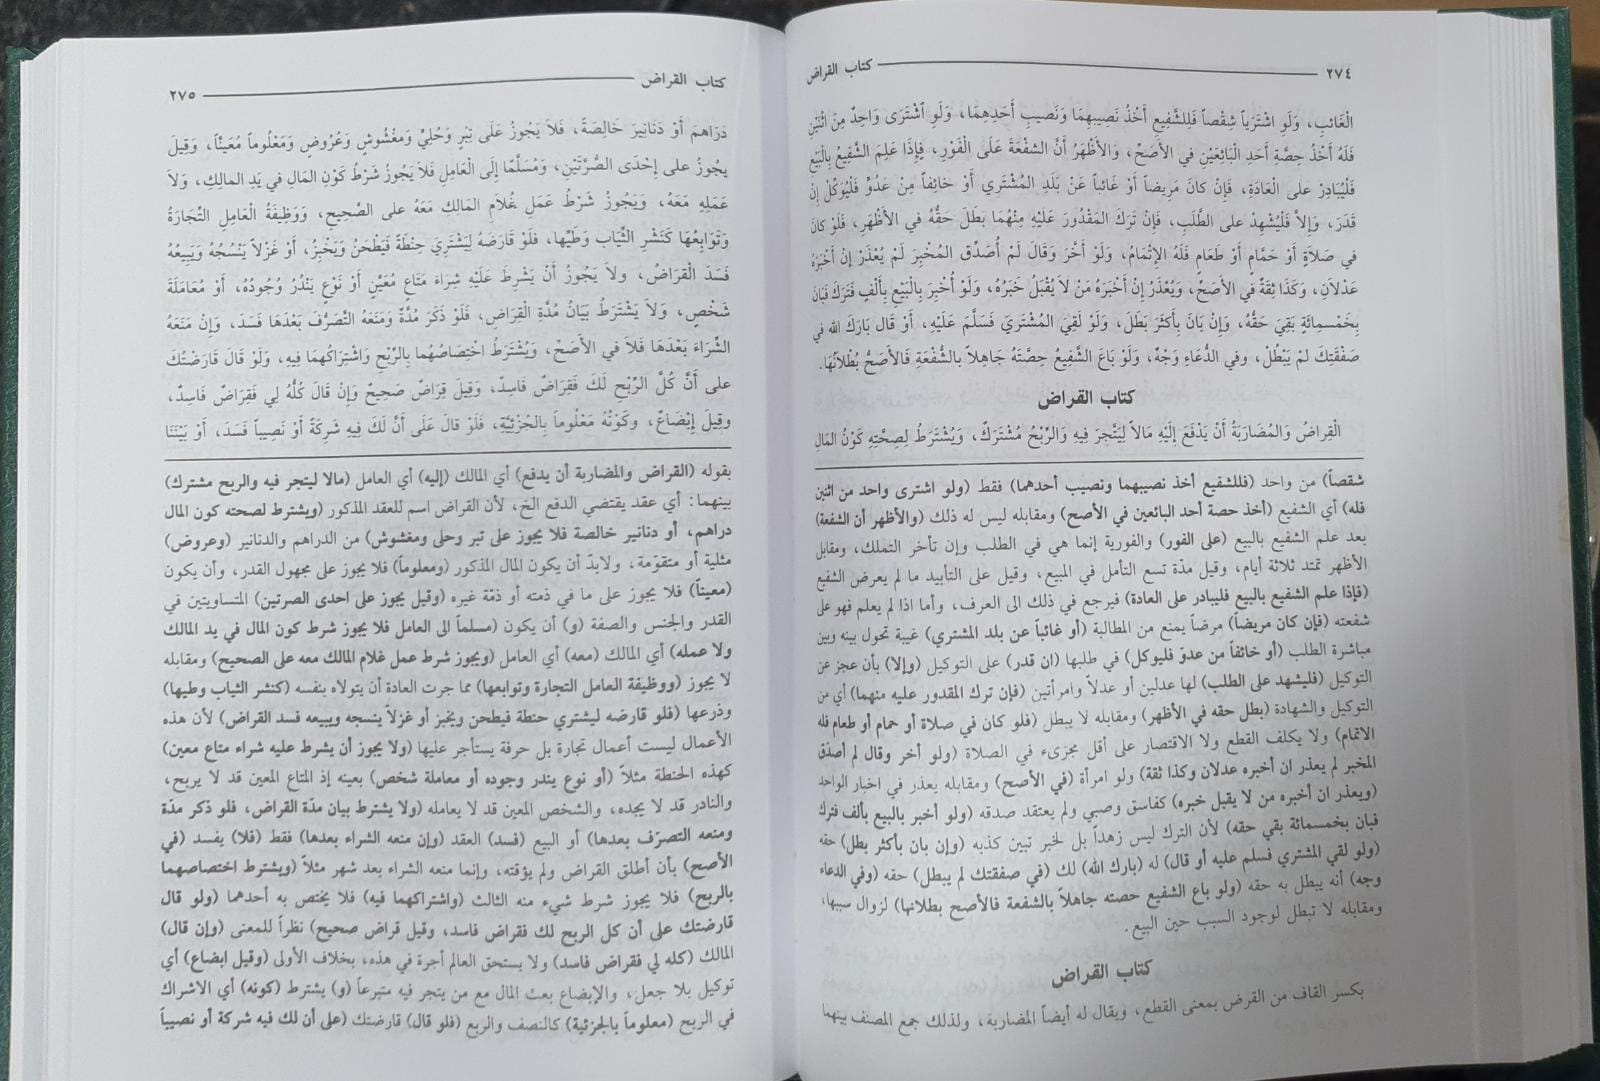 ٢٧٤ كتاب القراض
الْغَائِبِ، وَلَوِ اشْتَرَيَا شِقْصاً فَلِلشَّفِيعِ أَخْذُ نَصِيبِهِمَا وَنَصِيبِ أَحَدِهِمَا، وَلَوِ اشْتَرَى وَاحِدٌ مِنَ اثْنَيْنِ
فَلَهُ أَخْذُ حِصَّةِ أَحَدِ الْبَائِعَيْنِ في الأَصَحِّ، وَالأَظْهَرُ أَنَّ الشُّفْعَةَ عَلَى الْفَوْرِ، فَإِذَا عَلِمَ الشَّفِيعُ بِالْبَيْعِ
فَلْيُبَادِرْ على الْعَادَةِ، فَإِنْ كانَ مَرِيضاً أَوْ غَائباً عَنْ بَلَدِ المُشْتَرِي أَوْ خائفاً مِنْ عَدُوٍّ فَلْيُوَكِّلْ إِنْ
قَدَرَ، وَإِلاَّ فَلْيُشْهِدْ على الطَّلَبِ، فَإِنْ تَرَكَ المَقْدُورَ عَلَيْهِ مِنْهُمَا بَطَلَ حَقُّهُ في الأَظْهَرِ، فَلَوْ كانَ
في صَلاَةٍ أَوْ حَمَّامٍ أَوْ طَعَامٍ فَلَهُ الإِتْمَامُ، وَلَوْ أَخَّرَ وَقَالَ لَمْ أُصَدِّقِ المُخْبِرَ لَمْ يُعْذَرْ إِنْ أَخْبَرَهُ
عَدْلاَنِ، وَكَذَا ثِقَةٌ في الأَصَحِّ، وَيُعْذَرُ إِنْ أَخْبَرَهُ مَنْ لاَ يُقْبَلُ خَبَرُهُ، وَلَوْ أُخْبِرَ بِالْبَيْعِ بِأَلْفٍ فَتَرَكَ فَبَانَ
بِخَمْسِمِائَةٍ بَقِيَ حَقُّهُ، وَإِنْ بَانَ بِأَكْثَرَ بَطَلَ، وَلَوْ لَقِيَ المُشْتَرِيَ فَسَلَّمَ عَلَيْهِ، أَوْ قَال بَارَكَ الله في
صَفْقَتِكَ لمْ يَبْطُلْ، وفي الدُّعَاءِ وَجْهٌ، وَلَوْ بَاعَ الشَّفِيعُ حِصَّتَهُ جَاهِلاً بالشُّفْعَةِ فَالأَصَحُّ بُطْلاَنُهَا.
كتاب القراض
الْقِرَاضُ وَالمُضَارَبَةُ أَنْ يَدْفَعَ إِلَيْهِ مَالاً لِيَتَّجِرَ فِيهِ وَالرِّبْحُ مُشْتَرَكٌ، وَيُشْتَرَطُ لِصِحَّتِهِ كَوْنُ المَالِ
شقصاً) من واحد (فللشفيع أخذ نصيبهما ونصيب أحدهما) فقط (ولو اشترى واحد من اثنين
فله) أي الشفيع (أخذ حصة أحد البائعين في الأصح) ومقابله ليس له ذلك (والأظهر أن الشفعة)
بعد علم الشفيع بالبيع (على الفور) والفورية إنما هي في الطلب وإن تأخر التملك، ومقابل
الأظهر تمتد ثلاثة أيام، وقيل مدّة تسع التأمل في المبيع، وقيل على التأبيد ما لم يعرض الشفيع
(فإذا علم الشفيع بالبيع فليبادر على العادة) فيرجع في ذلك الى العرف، وأما اذا لم يعلم فهو على
شفعته (فإن كان مريضاً) مرضاً يمنع من المطالبة (أو غائباً عن بلد المشتري) غيبة تحول بينه وبين
مباشرة الطلب (أو خائفاً من عدوّ فليوكل) في طلبها (ان قدر) على التوكيل (وإلا) بأن عجز عن
التوكيل (فليشهد على الطلب) لها عدلين أو عدلاً وامرأتين (فإن ترك المقدور عليه منهما) أي من
التوكيل والشهادة (بطل حقه في الأظهر) ومقابله لا يبطل (فلو كان في صلاة أو حمام أو طعام فله
الاتمام) ولا يكلف القطع ولا الاقتصار على أقل مجزىء في الصلاة (ولو أخر وقال لم أصدّق
المخبر لم يعذر ان أخبره عدلان وكذا ثقة) ولو امرأة (في الأصح) ومقابله يعذر في اخبار الواحد
(ويعذر ان أخبره من لا يقبل خبره) كفاسق وصبي ولم يعتقد صدقه (ولو أخبر بالبيع بألف فترك
فبان بخمسمائة بقي حقه) لأن الترك ليس زهداً بل لخبر تبين كذبه (وإن بان بأكثر بطل) حقه
(ولو لقي المشتري فسلم عليه أو قال) له (بارك الله) لك (في صفقتك لم يبطل) حقه (وفي الدعاء
وجه) أنه يبطل به حقه (ولو باع الشفيع حصته جاهلاً بالشفعة فالأصح بطلانها) لزوال سببها،
ومقابله لا تبطل لوجود السبب حين البيع.
كتاب القراض
بكسر القاف من القرض بمعنى القطع، ويقال له أيضاً المضاربة، ولذلك جمع المصنف بينهما
كتاب القراض ٢٧٥
دَرَاهِمَ أَوْ دَنَانِيرَ خَالِصَةً، فَلاَ يَجُوزُ عَلَى تِبْرٍ وَحُلِيٍّ وَمَغْشُوشٍ وَعُرُوضٍ وَمَعْلُوماً مُعَيَّناً، وَقِيلَ
يجُوزُ على إِحْدَى الصُّرَّتَيْنِ، وَمُسَلَّمًا إِلَى الْعَامِلِ فَلاَ يَجُوزُ شَرْطُ كَوْنِ المَالِ في يَدِ المالِكِ، وَلاَ
عَمَلِهِ مَعَهُ، وَيَجُوزُ شَرْطُ عَمَلِ غُلاَمِ المَالِكِ مَعَهُ على الصَّحِيحِ، وَوَظِيفَةُ الْعَامِلِ التِّجَارَةُ
وَتَوَابِعُهَا كَنَشْرِ الثِّيَابِ وَطَيِّها، فَلَوْ قَارَضَهُ لِيَشْتَرِيَ حِنْطَةً فَيَطْحَنَ وَيَخْبِزَ، أَوْ غَزْلاً يَنْسُجُهُ وَيَبِيعُهُ
فَسَدَ الْقِرَاضُ، ولاَ يَجُوزُ أَنْ يَشْرِطَ عَلَيْهِ شِرَاءَ مَتَاعٍ مُعَيَّنٍ أَوْ نَوْعٍ يَنْدُرُ وُجُودُهُ، أَوْ مُعَامَلَةَ
شَخْصٍ، وَلاَ يَشْتَرَطُ بَيَانُ مُدَّةِ الْقِرَاضِ، فَلَوْ ذَكَرَ مُدَّةً وَمَنَعَهُ التَّصَرُّفَ بَعْدَهَا فَسَدَ، وَإِنْ مَنَعَهُ
الشِّرَاءَ بَعْدَهَا فَلاَ في الأَصَحِّ، وَيُشْتَرَطُ اخْتِصَاصُهُما بِالرِّبْحِ وَاشْتِرَاكُهما فِيهِ، وَلَوْ قَالَ قَارَضْتُكَ
على أَنَّ كُلَّ الرِّبْحِ لَكَ فَقِرَاضٌ فَاسِدٌ، وَقِيلَ قِرَاضٌ صَحِيحٌ وَإِنْ قَالَ كُلُّهُ لِي فَقِرَاضٌ فَاسِدٌ،
وَقِيلَ إِبْضَاعٌ، وكَوْنُهُ مَعْلُوماً بِالجُزْئِيَّةِ، فَلَوْ قالَ عَلَى أَنَّ لَكَ فِيهِ شَرِكَةً أَوْ نَصِيباً فَسَدَ، أَوْ بَيْنَنَا
بقوله (القراض والمضاربة أن يدفع) أي المالك (إليه) أي العامل (مالا ليتجر فيه والربح مشترك)
بينهما: أي عقد يقتضي الدفع الخ، لأن القراض اسم للعقد المذكور (ويشترط لصحته كون المال
دراهم، أو دنانير خالصة فلا يجوز على تبر وحلى ومغشوش) من الدراهم والدنانير (وعروض)
مثلية أو متقوّمة، ولابدّ أن يكون المال المذكور (ومعلوماً) فلا يجوز على مجهول القدر، وأن يكون
(معيناً) فلا يجوز على ما في ذمته أو ذمّة غيره (وقيل يجوز على احدى الصرتين) المتساويتين في
القدر والجنس والصفة (و) أن يكون (مسلماً الى العامل فلا يجوز شرط كون المال في يد المالك
ولا عمله) أي المالك (معه) أي العامل (ويجوز شرط عمل غلام المالك معه على الصحيح) ومقابله
لا يجوز (ووظيفة العامل التجارة وتوابعها) مما جرت العادة أن يتولاه بنفسه (كنشر الثياب وطيها)
وذرعها (فلو قارضه ليشتري حنطة فيطحن ويخبز أو غزلاً ينسجه ويبيعه فسد القراض) لأن هذه
الأعمال ليست أعمال تجارة بل حرفة يستأجر عليها (ولا يجوز أن يشرط عليه شراء متاع معين)
كهذه الحنطة مثلاً (أو نوع يندر وجوده أو معاملة شخص) بعينه إذ المتاع المعين قد لا يربح،
والنادر قد لا يجده، والشخص المعين قد لا يعامله (ولا يشترط بيان مدّة القراض، فلو ذكر مدّة
ومنعه التصرّف بعدها) أو البيع (فسد) العقد (وإن منعه الشراء بعدها) فقط (فلا) يفسد (في
الأصح) بأن أطلق القراض ولم يؤقته، وإنما منعه الشراء بعد شهر مثلاً (ويشترط اختصاصهما
بالربح) فلا يجوز شرط شيء منه الثالث (واشتراكهما فيه) فلا يختص به أحدهما (ولو قال
قارضتك على أن كل الربح لك فقراض فاسد، وقيل قراض صحيح) نظراً للمعنى (وإن قال)
المالك (كله لي فقراض فاسد) ولا يستحق العالم أجرة في هذه، بخلاف الأولى (وقيل ابضاع) أي
توكيل بلا جعل، والإبضاع بعث المال مع من يتجر فيه متبرعاً (و) يشترط (كونه) أي الاشراك
في الربح (معلوماً بالجزئية) كالنصف والربع (فلو قال) قارضتك (على أن لك فيه شركة أو نصيباً